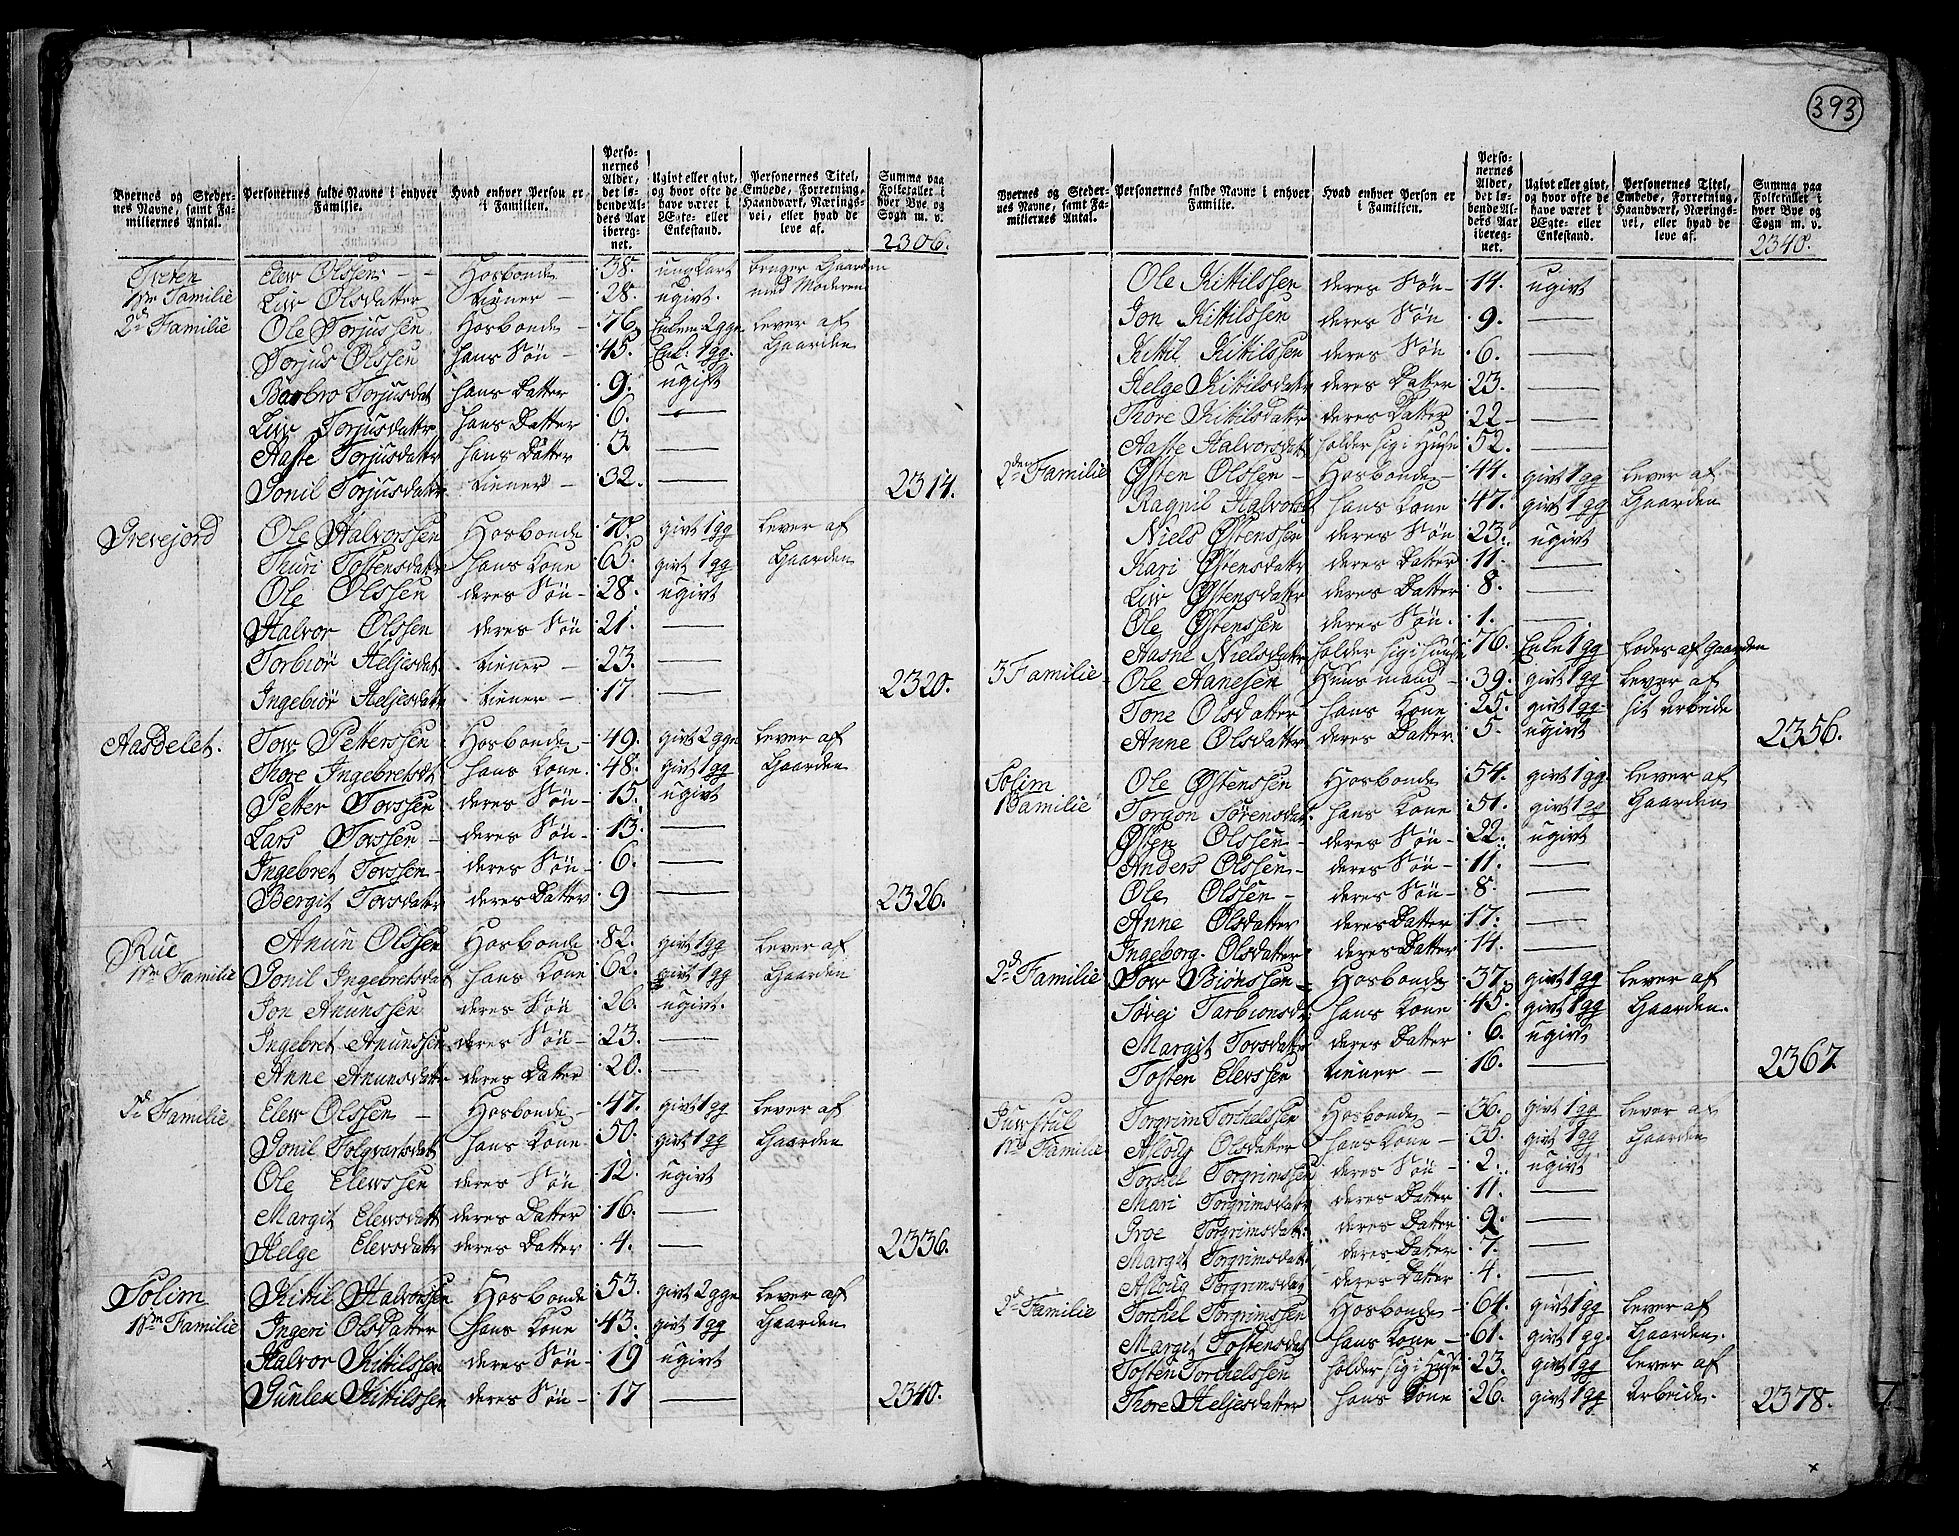 393
Byernes og Stedernes Navne, samt Familiernes Antal. | Personernes fulde Navne i enhver Familie. | Hvad enhver Person er i Familien. | Personernes Alder, det løbende Alders Aar iberegnet. | Ugivt eller givt, og hvor ofte de have været i Ægte- eller Enkestand. | Personernes Titel, Embede, Forretning, Haandværk, Næringsvei, eller hvad de leve af. | Summa paa Folketallet i hver Bye og Sogn m. v.
2306.
Tveten Elew Olssen - - Hosbonde 38. ungkarl bruger Gaarden
1ste Familie Liw Olsdatter tiener - 28. ugivt. med Moderen
2d Familie Ole Torjussen Hosbonde - 76. Enkem 2gge lever af
Torjus Olssen hans Søn - 45. Enk: 1gg. Gaarden
Barbro Torjusdat hans Datter 9. ugift
Liw Torjusdatter hans Datter 6. —
Aaste Torjusdattr hans Datter 3 —
Gonil Torjusdattr tiener - 32. — 2314.
Grevejord Ole Halvorssen Hosbonde 70. givt 1gg lever af
Thuri Tostensdattr hans Kone 65. givt 1gg Gaarden
Ole Olssen deres Søn - 28. ugivt
Halvor Olssen deres Søn 21. —
Torbiør Heljesdat tiener - 23. —
Ingebiør Heljesdatt tiener - 17. — 2320.
Aasdelet. Tow Petterssen Hosbonde - 49. givt 2gge lever af
Thore Ingebretsdt hans Kone. 48. givt 1gg Gaarden
Petter Tovssen deres Søn - 15. ugivt
Lars Tovssen - deres Søn - 13. —
Ingebret Tovssen - deres Søn 6. —
Bergit Tovsdatter deres Datter 9 — 2326.
Rue Anun Olssen Hosbonde 82. givt 1gg lever af
1ste Familie Gonil Ingebretsdat hans Kone 62. givt 1gg Gaarden
Jon Anunssen deres Søn 26. ugivt.
Ingebret Anunssen deres Søn - 23. —
Anne Anunsdatter deres Datter 20. —
2d Familie Elew Olssen - Hosbonde 47. givt 1gg lever af
Gonil Tolgvarsdat hans Kone 50. givt 1gg Gaarden
Ole Elewssen deres Søn 12. ugivt
Margit Elewsdatt deres Datter 16. —
Helge Elevsdattr deres Datter 4. — 2336.
Solim Kittil Halvorssen Hosbonde 53. givt 2gge lever af
1ste Familie Ingeri Olsdatter hans Kone 43. givt 1gg Gaarden
Halvor Kittilssen deres Søn - 19 ugivt
Gunlek Kittilssen deres Søn - 17 — 2340.
Byernes og Stedernes Navne, samt Familiernes Antal. | Personernes fulde Navne i enhver Familie. | Hvad enhver Person er i Familien. | Personernes Alder, det løbende Alders Aar iberegnet. | Ugivt eller givt, og hvor ofte de have været i Ægte- eller Enkestand. | Personernes Titel, Embede, Forretning, Haandværk, Næringsvei, eller hvad de leve af. | Summa paa Folketallet i hver Bye og Sogn m. v.
2340.
Ole Kittilssen deres Søn - 14. ugivt
Jon Kittilssen deres Søn 9. —
Kittil Kittilssen deres Søn 6. —
Helge Kittilsdattr deres Datter 23. —
Thore Kittilsdattr deres Datter 22 - —
Aaste Halvorsdatt holder sig i Huse 52. —
2den Familie Østen Olssen - Hosbonde - 44. givt 1gg lever af
Ragnil Halvorsd hans Kone 47. givt 1gg Gaarden
Niels Østenssen deres Søn 23. ugivt
Kari Østensdattr deres Datter 11. —
Liw Østensdattr deres Datter 8. —
Ole Østenssen deres Søn. 1. —
Aasne Nielsdattr holder sig i huse 76. Enke 1gg fødes af Gaarden
3 Familie Ole Hanesen Huusmand - 39. givt 1gg lever af
Tone Olsdatter hans Kone 25. givt 1gg sit arbeide
Anne Olsdatter deres Datter. 5. ugivt 2356.
Solim Ole Østenssen Hosbonde 54. givt 1gg. lever af
1 Familie Torgon Sørensdat. hans Kone 51. givt 1gg Gaarden
Østen Olssen - deres Søn - 22. ugivt
Anders Olssen deres Søn - 11. —
Ole Olssen - deres Søn - 8. —
Anne Olsdatter deres Datter 17. —
Ingeborg Olsdatter deres Datter 14. —
2d Familie Tow Biønssen - Hosbonde 37. givt 1gg lever af
Søvei Tarbionsd hans Kone 45. givt 1gg Gaarden.
Margit Tovsdattr deres Datter 6. ugivt
Tosten Elevssen tiener - 16. — 2367
Juwstul Torgrim Torchelssen Hosbonde - 36. givt 1gg lever af
1ste Familie Asloug Olsdatter hans Kone - 36. givt 1gg Gaarden
Torkel Torgrimssen deres Søn - 2. ugivt
Mari Torgrimsdatr deres Datter 11. —
Groe Torgrimsdatt. deres Datter 9. —
Margit Torgrimsdatt deres Datter 7. —
Asloug Torgrimsdat deres Datter 4. —
2d Familie Torchel Torgrimssen Hosbonde - 64. givt 1gg lever af
Margit Tostensdat hans Kone - 61. givt 1gg. Gaarden.
Tosten Torchelssen holder sig i Huse 23. givt 1gg lever af
Thore Heljesdatter hans Kone 26. givt 1gg arbeide. 2378.